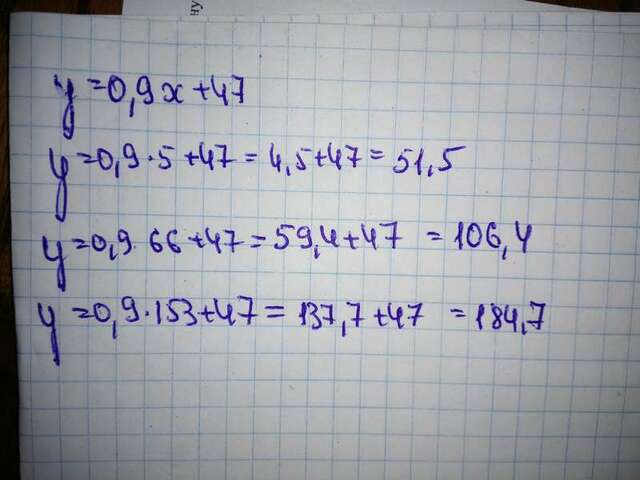 y=0,9x+47
y=0,9·5+47=4,5+47=51,5
y=0,9·66+47=59,4+47=106,4
y=0,9·153+47=137,7+47=184,7
ну